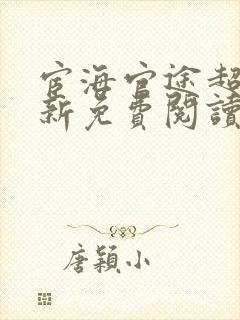 宦海官途超
新免費閱讀
唐穎小